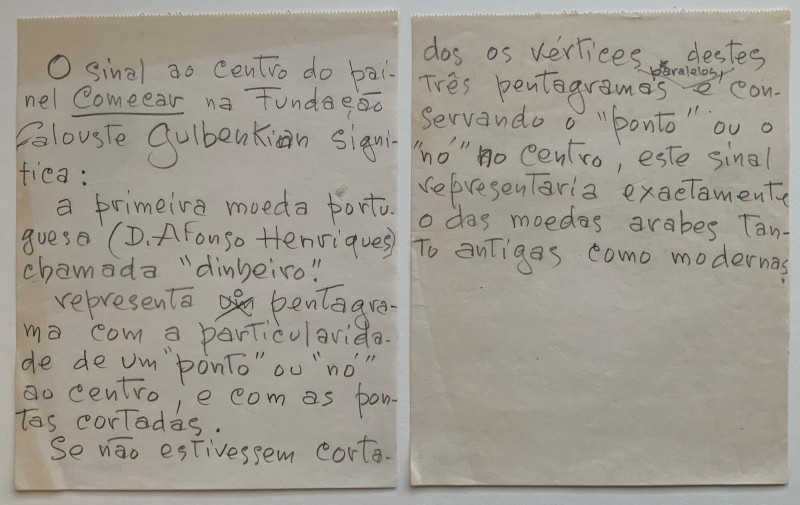 O sinal ao centro do pai-
nel Começar na Fundação
Calouste Gulbenkian signi-
fica:
a primeira moeda portu-
guesa (D. Afonso Henriques)
chamada "dinheiro".
representa pentagra-
ma com a particularida-
de de um "ponto" ou "nó"
ao centro, e com as pon-
tas cortadas.
Se não estivessem corta-
dos os vértices destes
paralelos
três pentagramas e con-
servando o "ponto" ou o
"nó" no centro, este sinal
representaria exactamente
o das moedas arabes tan-
to antigas como modernas.